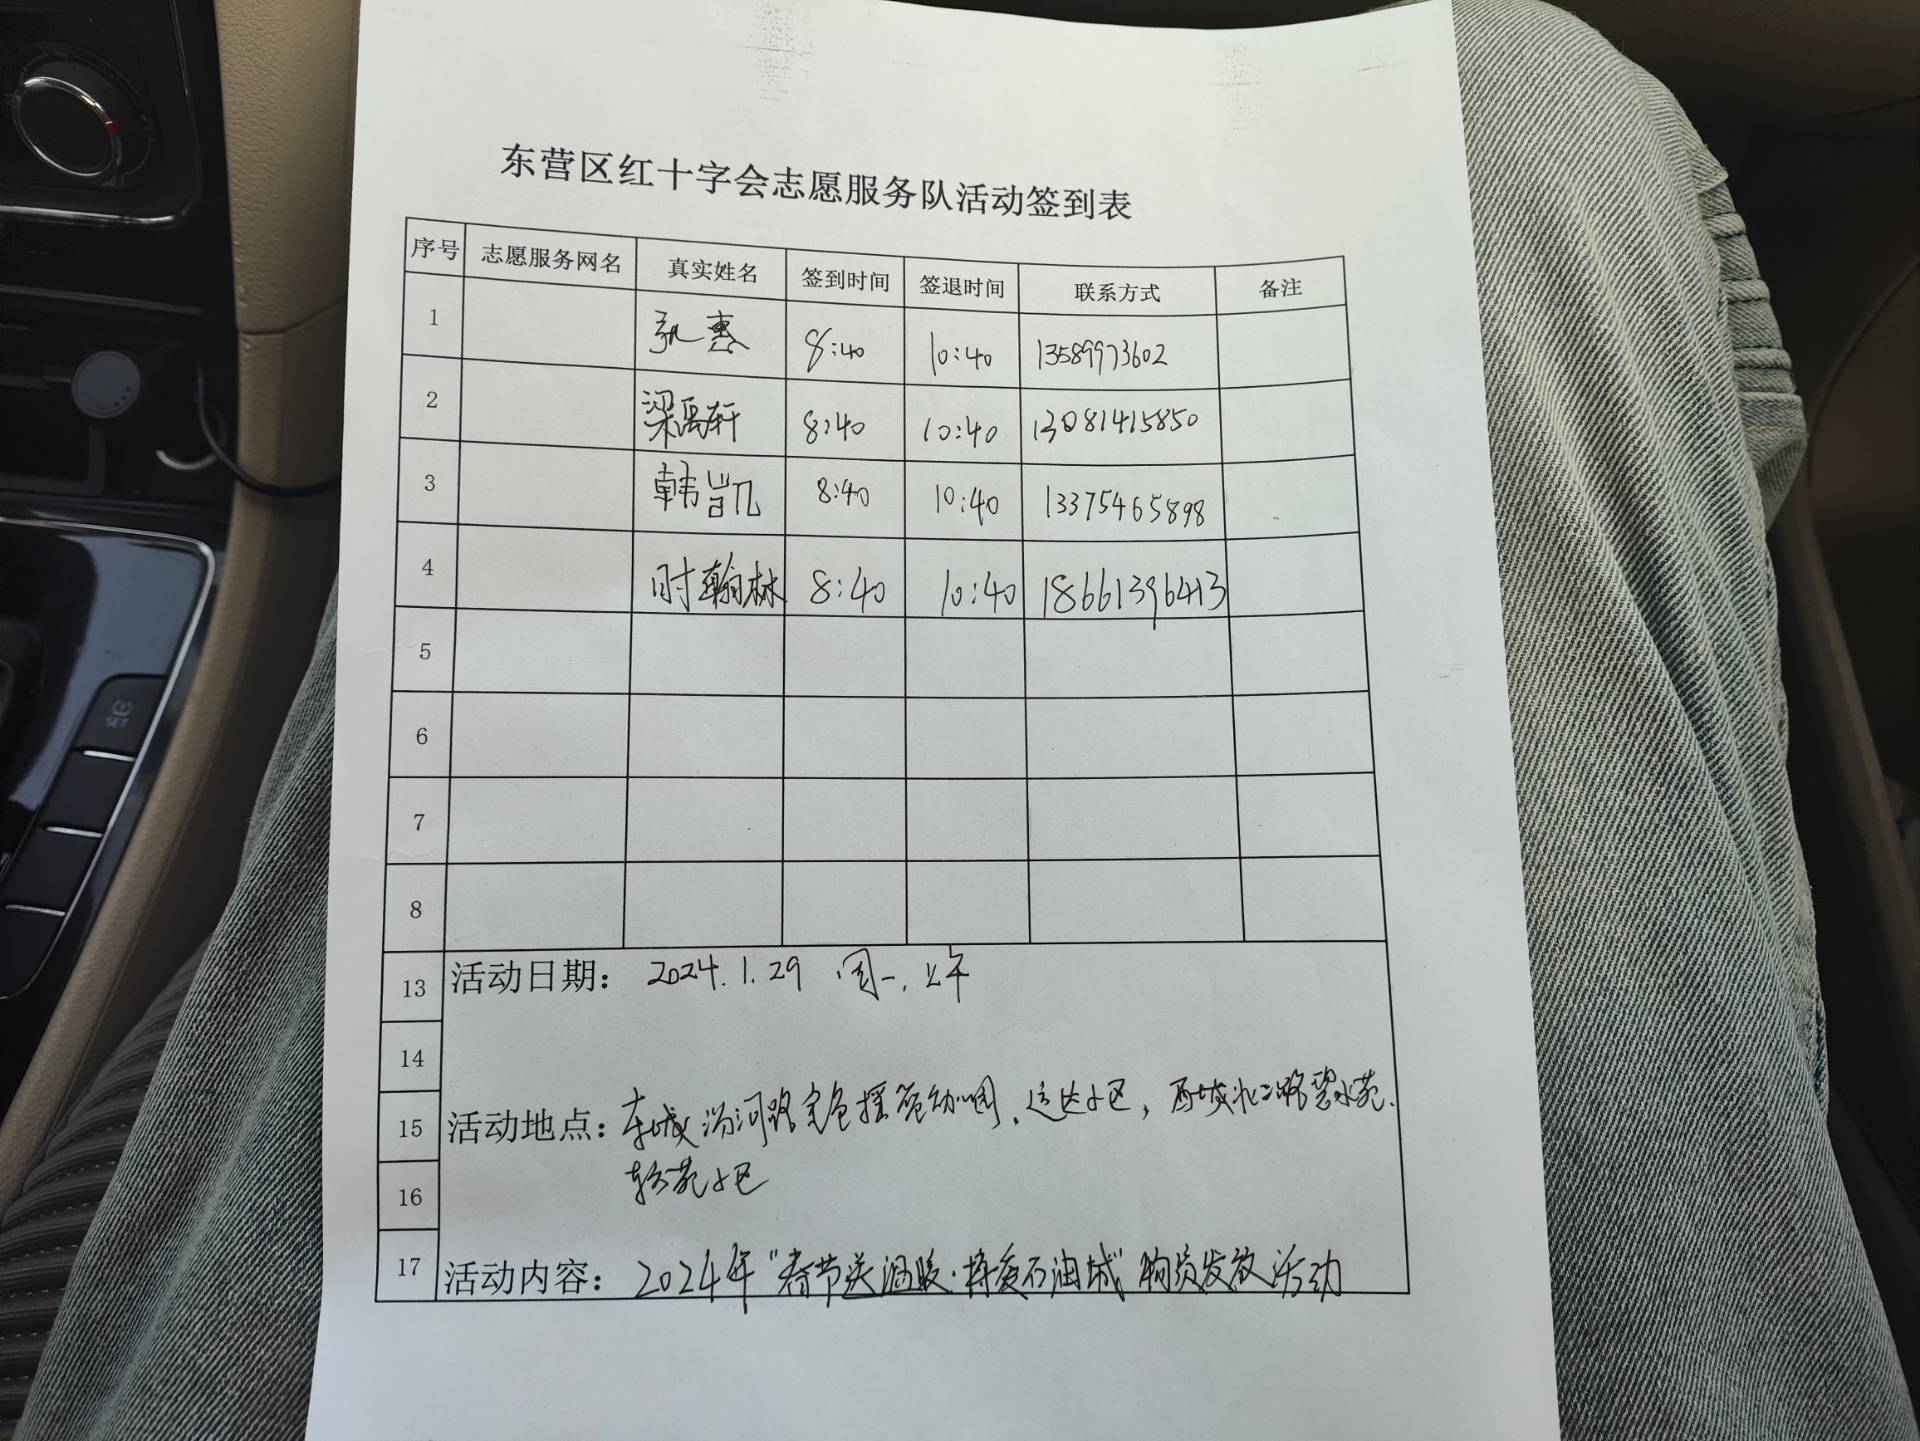 东营区红十字会志愿服务队活动签到表
序号 志愿服务网名 真实姓名 签到时间 签退时间 联系方式 备注
1 惠 8:40 10:40 13589973602
2 梁禹轩 8:40 10:40 13081415850
3 韩凯 8:40 10:40 13375465898
4 时翰林 8:40 10:40 18661396413
5
6
7
8
13 活动日期: 2024.1.29 周一,上午
14
15 活动地点: 东城汾河路金色摇篮幼儿园、运达小区, 西城北二路碧水苑、
16 小区
17 活动内容: 2024年"春节送温暖·博爱石油城"物资发放活动
SET